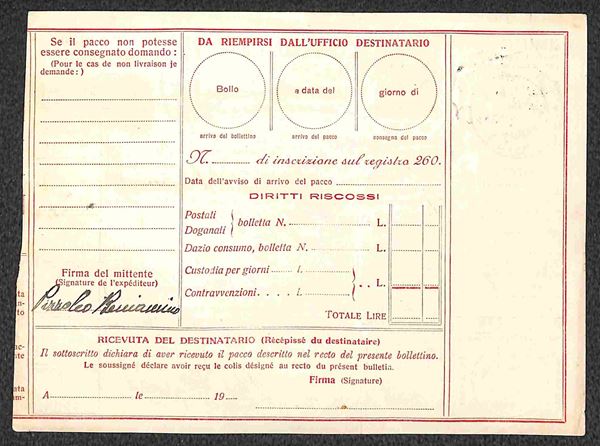 Se il pacco non potesse
essere consegnato domando :
(Pour le cas de non livraison je
demande : )
Firma del mittente
(Signature de l'expéditeur)
DA RIEMPIRSI DALL'UFFICIO DESTINATARIO
Bollo
a data del
giorno di
arrivo del bollettino
arrivo del pacco
consegna del pacco
N. di inscrizione sul registro 260.
Data dell'avviso di arrivo del pacco
DIRITTI RISCOSSI
Postali
Doganali
bolletta N. L.
Dazio consumo, bolletta N. L.
Custodia per giorni l.
Contravvenzioni . . . . l.
. . L.
TOTALE LIRE
RICEVUTA DEL DESTINATARIO (Récépissé du destinataire)
Il sottoscritto dichiara di aver ricevuto il pacco descritto nel recto del presente bollettino.
Le soussigné déclare avoir reçu le colis désigné au recto du présent bulletin.
Firma (Signature)
A le 19